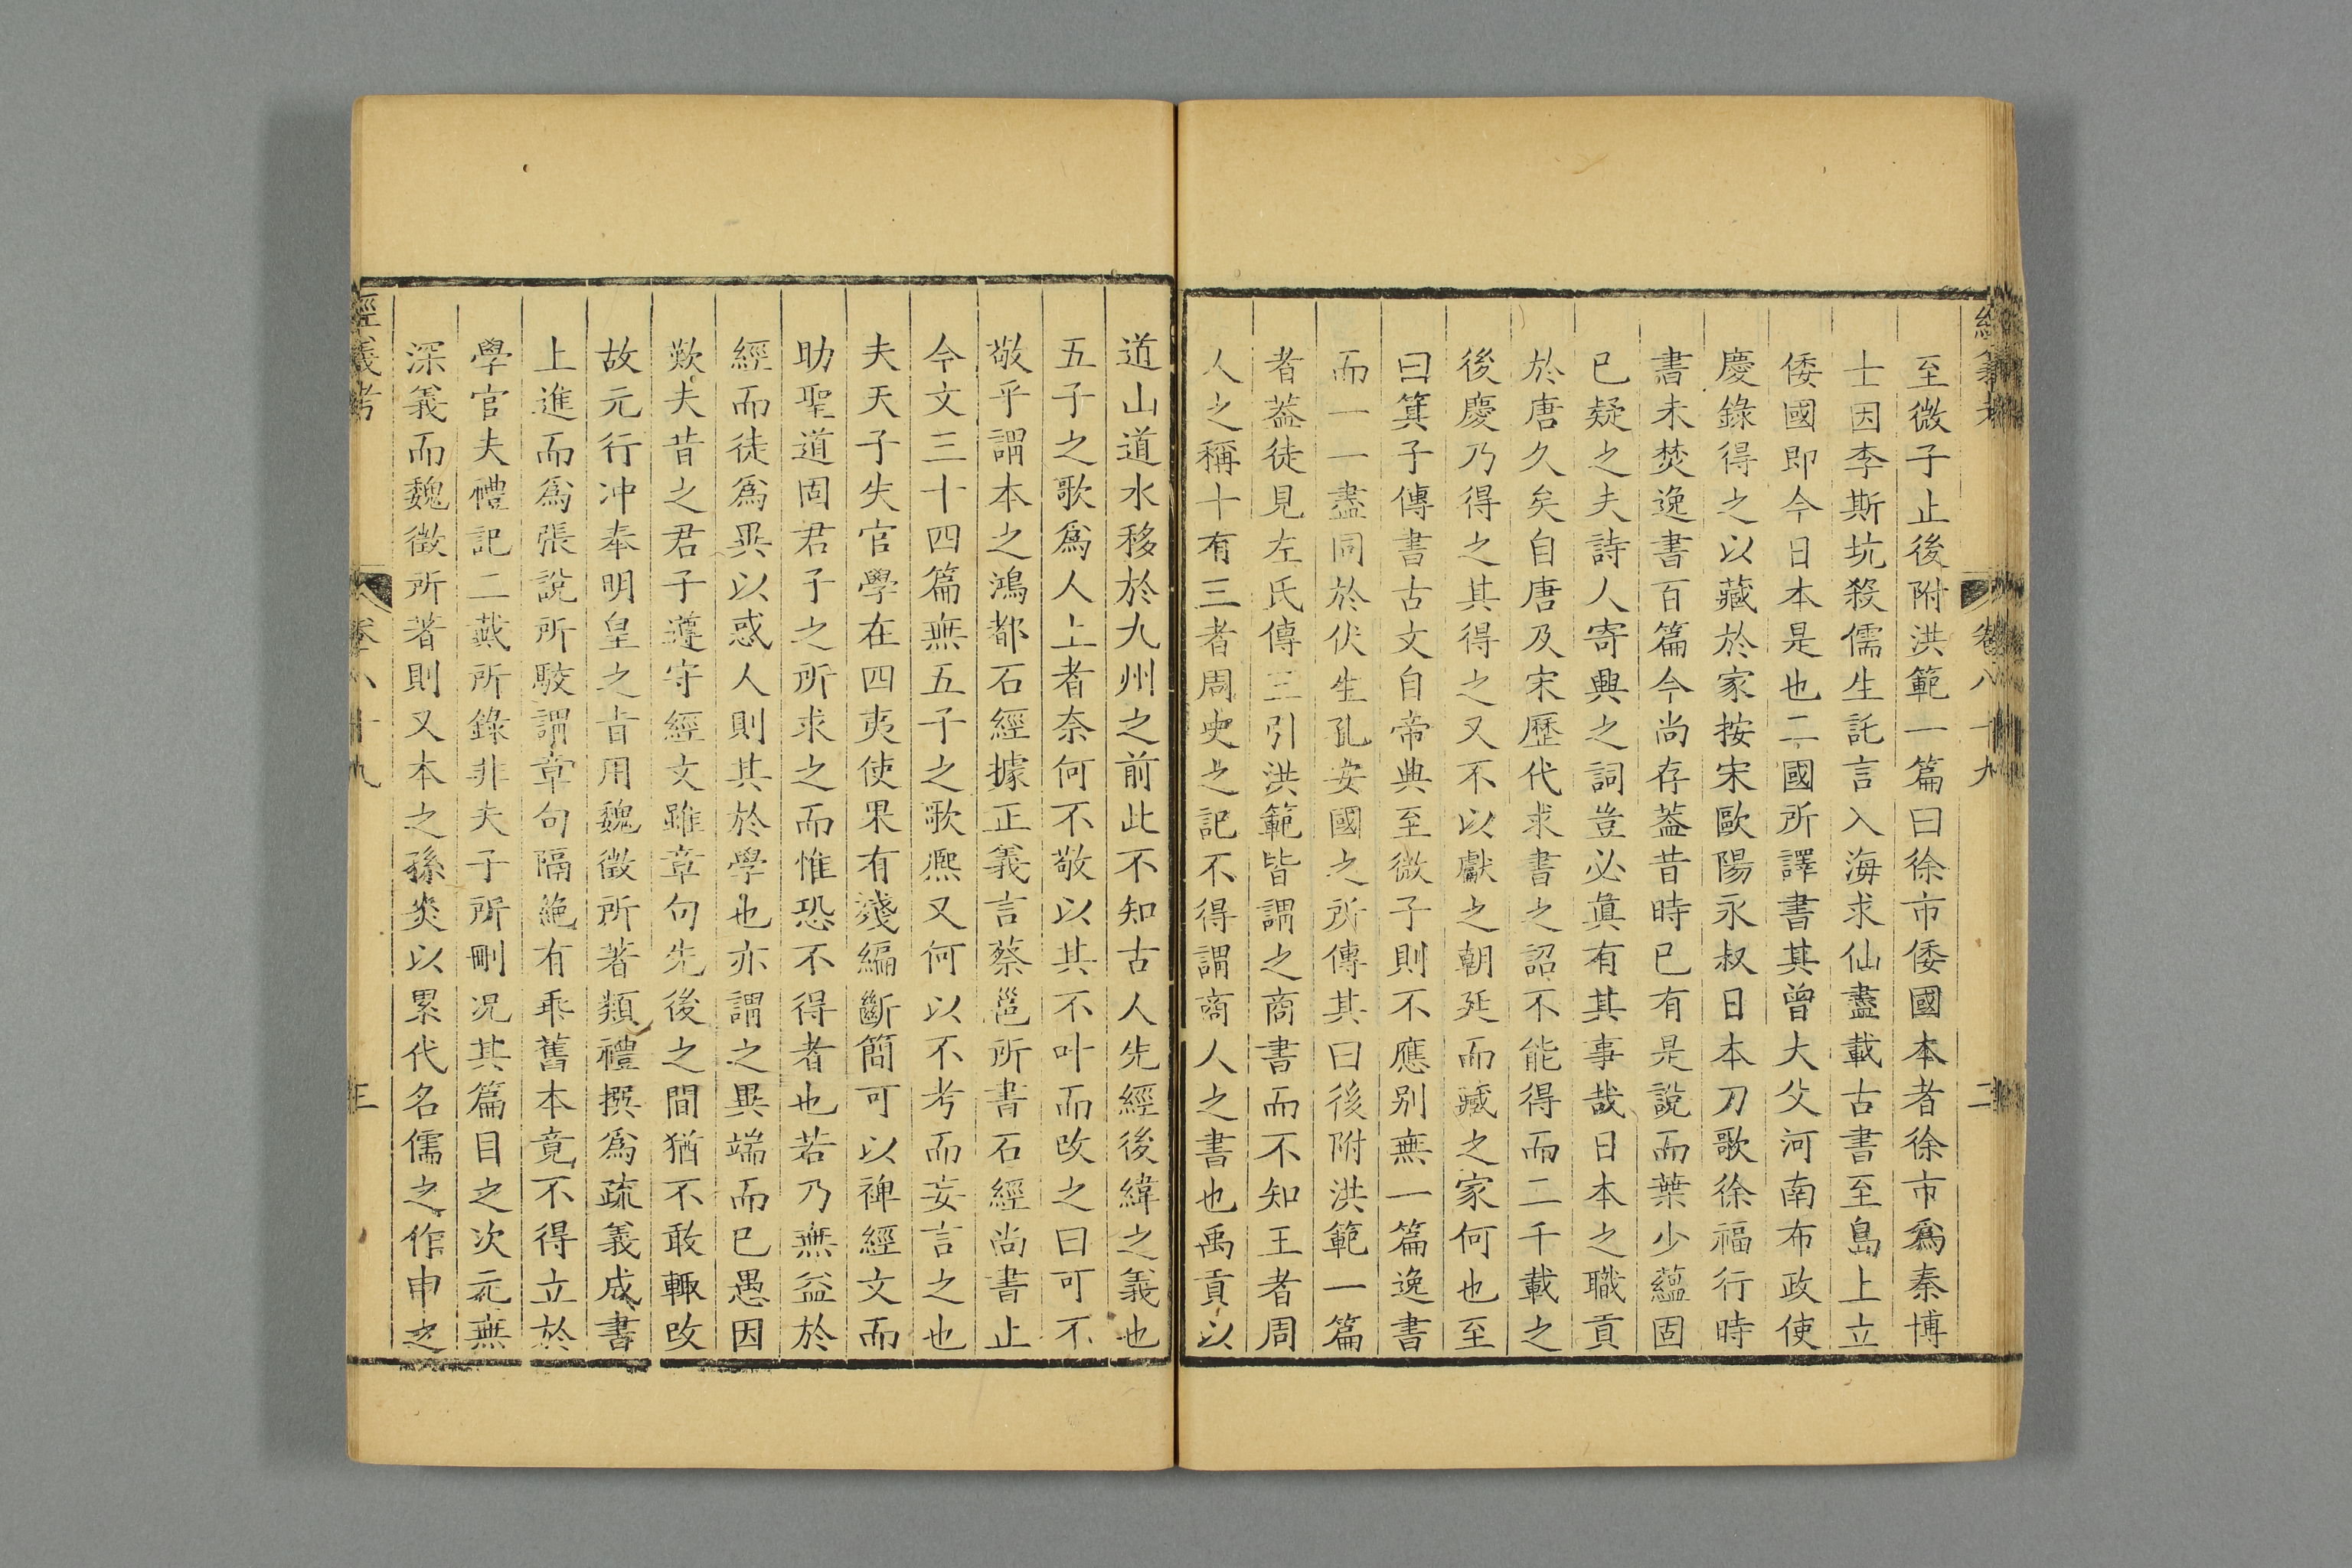 卷八十九
二
至微子止後附洪範一篇曰徐市倭國本者徐市爲秦博
士因李斯坑殺儒生託言入海求仙盡載古書至島上立
倭國即今日本是也二國所譯書其曾大父河南布政使
慶錄得之以藏於家按宋歐陽永叔日本刀歌徐福行時
書未焚逸書百篇今尚存葢昔時已有是說而葉少蘊固
已疑之夫詩人寄興之詞豈必眞有其事哉日本之職貢
於唐久矣自唐及宋歷代求書之詔不能得而二千載之
後慶乃得之其得之又不以獻之朝廷而藏之家何也至
曰箕子傳書古文自帝典至微子則不應别無一篇逸書
而一一盡同於伏生孔安國之所傳其曰後附洪範一篇
者葢徒見左氏傳三引洪範皆謂之商書而不知王者周
人之稱十有三者周史之記不得謂商人之書也禹貢以
道山道水移於九州之前此不知古人先經後緯之義也
五子之歌爲人上者奈何不敬以其不叶而改之曰可不
敬乎謂本之鴻都石經據正義言蔡邕所書石經尚書止
今文三十四篇無五子之歌熈又何以不考而妄言之也
夫天子失官學在四夷使果有殘編斷簡可以裨經文而
助聖道固君子之所求之而惟恐不得者也若乃無益於
經而徒爲異以惑人則其於學也亦謂之異端而已愚因
歎夫昔之君子遵守經文雖章句先後之間猶不敢輙改
故元行冲奉明皇之旨用魏徵所著類禮撰爲疏義成書
上進而爲張說所駮謂章句隔絶有乖舊本竟不得立於
學官夫禮記二戴所錄非夫子所刪况其篇目之次元無
深義而魏徵所著則又本之孫炎以累代名儒之作申之
經義考
卷八十九
三